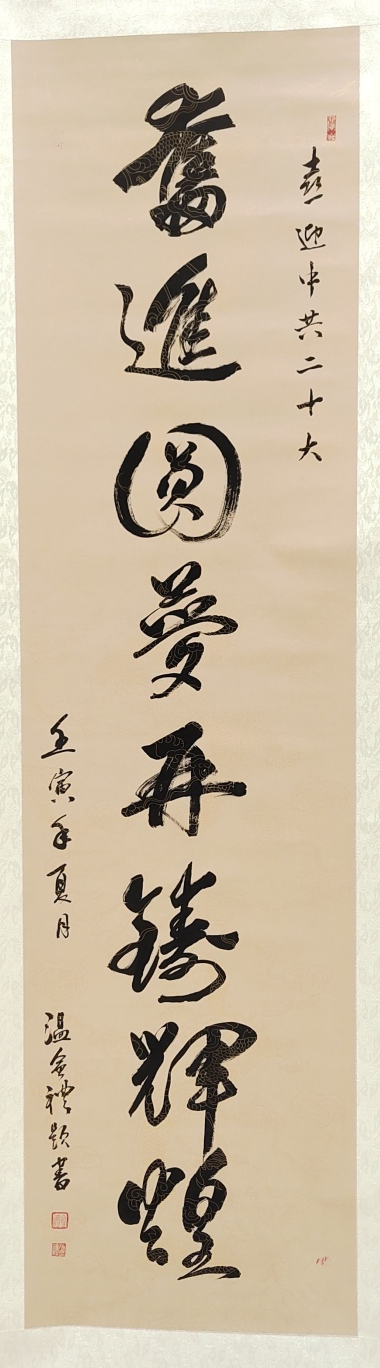 喜迎中共二十大
奮進圓夢再鑄輝煌
壬寅年夏月
温金禮題書